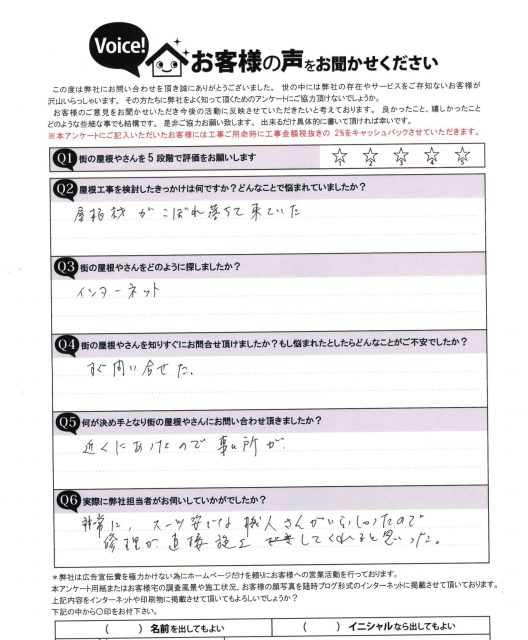 Voice!
お客様の声をお聞かせください
この度は弊社にお問い合わせを頂き誠にありがとうございました。世の中には弊社の存在やサービスをご存知ないお客様が
沢山いらっしゃいます。その方たちに弊社をよく知って頂くためのアンケートにご協力頂けないでしょうか。
お客様のご意見をお聞かせいただき今後の活動に反映させていただきたいと考えております。良かったこと、嬉しかったこと
どのような些細な事でも結構です。是非ご協力お願い致します。出来るだけ具体的に書いて頂ければ幸いです。
※本アンケートにご記入いただいたお客様には工事ご用命時に工事金額税抜きの 2%をキャッシュバックさせていただきます。
Q1 街の屋根やさんを5段階で評価をお願いします
1 2 3 4 5
Q2 屋根工事を検討したきっかけは何ですか?どんなことで悩まれていましたか?
屋根材がこぼれ落ちて来ていた
Q3 街の屋根やさんをどのように探しましたか?
インターネット
Q4 街の屋根やさんを知りすぐにお問合せ頂けましたか?もし悩まれたとしたらどんなことがご不安でしたか?
すぐ問い合せた.
Q5 何が決め手となり街の屋根やさんにお問い合わせ頂きましたか?
近くにあったので 事ム所が.
Q6 実際に弊社担当者がお伺いしていかがでしたか?
非常に,スーツ姿では 職人さんがいらしったので
修理が 直接施工 してくれると思いった.
＊弊社は広告宣伝費を極力かけない為にホームページだけを頼りにお客様への営業活動を行っております。
本アンケート用紙またはお客様宅の調査風景や施工状況、お客様の顔写真を随時ブログ形式のインターネットに掲載させて頂いております。
上記内容をインターネットや印刷物に掲載させて頂いてもよろしいでしょうか?
下記の中から〇印をお付下さい。
( )名前を出してもよい
( )イニシャルなら出してもよい